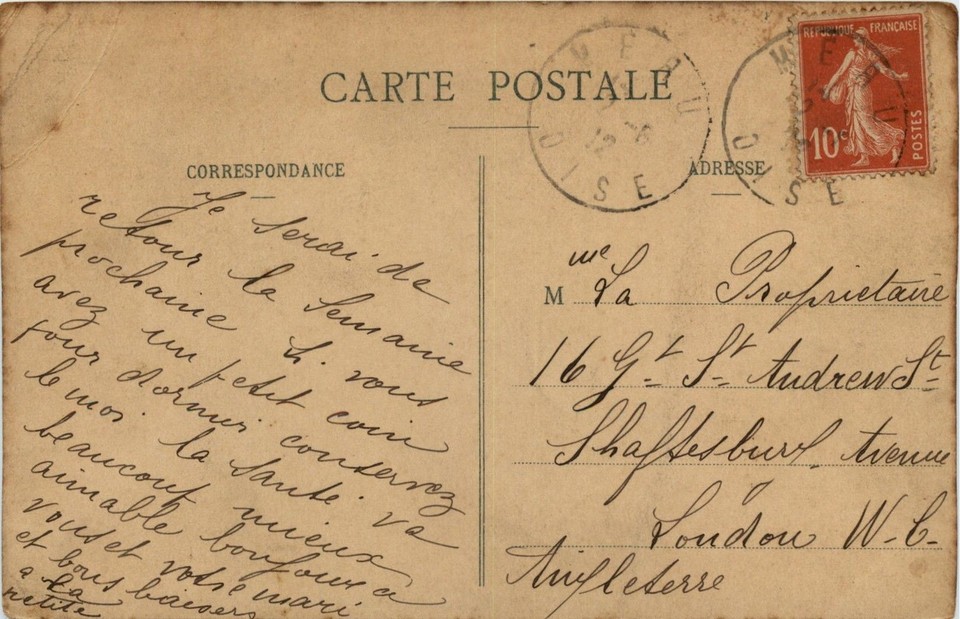 CARTE POSTALE
CORRESPONDANCE
Je serai de
retour la Semaine
prochaine Si vous
avez un petit coin
pour dormir conservez
le moi. la Santé. va
beaucoup mieux
aimable bonjour a
vous et votre mari
et bons baisers
a la
petite
ADRESSE
M me La Proprietaire
16 Gt St Andrew St
Shaftesbury Avenue
London W.C.
Angleterre
REPUBLIQUE FRANÇAISE
10c
POSTES
MERU
OISE
MERU
OISE